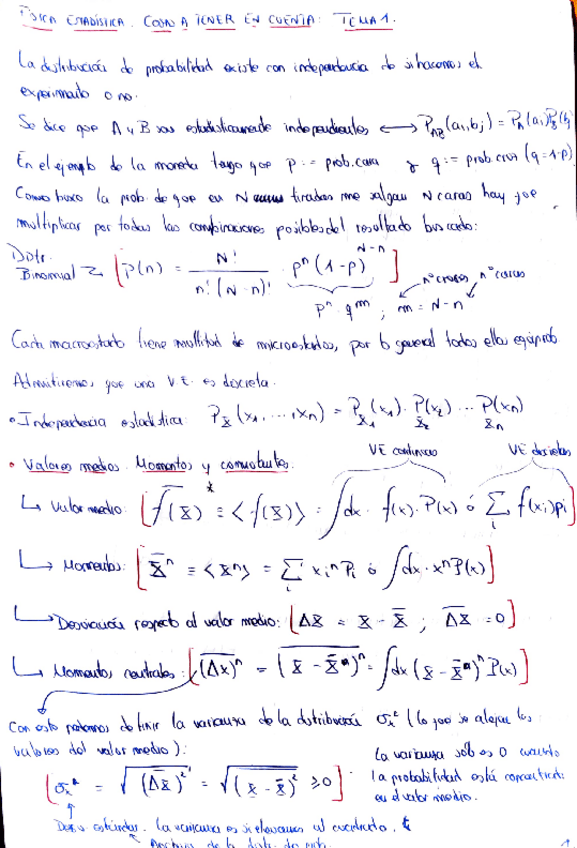 FÍSICA ESTADÍSTICA. COSAS A TENER EN CUENTA: TEMA 1.
La distribución de probabilidad existe con independencia de si hacemos el
experimento o no.
Se dice que A y B son estadísticamente independientes ⟷ P_AB(ai, bj) = PA(ai)PB(bj
En el ejemplo de la moneda tengo que p := prob. cara y q := prob. cruz (q = 1-p)
Como busco la prob. de que en N tiradas me salgan N caras hay que
multiplicar por todas las combinaciones posibles del resultado buscado:
Distr. Binomial [P(n) = N! / n!(N-n)! · p^n (1-p)^(N-n)]
p^n · q^m ; m = N-n nº cruces nº caras
Cada macroestado tiene multitud de microestados, por lo general todos ellos equiprob
Admitiremos que una V.E. es discreta.
• Independencia estadística: P_X(x1, ..., xn) = P_X1(x1) · P_X2(x2) ... P_Xn(xn)
• Valores medios. Momentos y
VE continuas VE discretas
↳ Valor medio: [f(X)‾ ≡ <f(X)> = ∫dx · f(x) · P(x) ó Σ_i f(xi)pi]
↳ Momentos: [X̄^n ≡ <X^n> = Σ_i xi^n Pi ó ∫dx · x^n P(x)]
↳ Desviación respecto al valor medio: [ΔX = X - X̄ ; ΔX‾ = 0]
↳ Momentos centrales: [(Δx)^n‾ = (X - X̄)^n‾ = ∫dx (X - X̄)^n P(x)]
Con esto podemos definir la varianza de la distribución σx² (lo que se alejan los
valores del valor medio):
[σx = √(ΔX)²‾ = √(X - X̄)²‾ ≥ 0]
La varianza sólo es 0 cuando
la probabilidad está concentrada
en el valor medio.
Desv. estándar. La varianza es si elevamos al cuadrado.
de la distr. de prob.
1